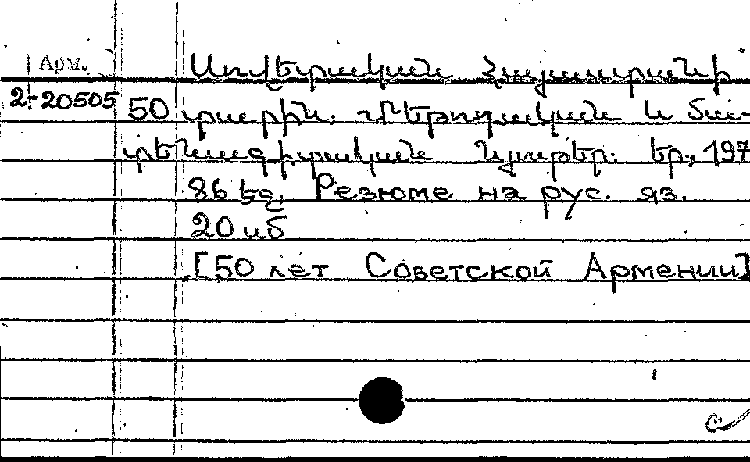 Арм.
2-20505
Սովետական Հայաստանի
50 տարին. Մեթոդական և մա-
տենագիտական նյութեր. Եր., 197
86 եջ. Резюме на рус. яз.
20 սմ
[50 лет Советской Армении]